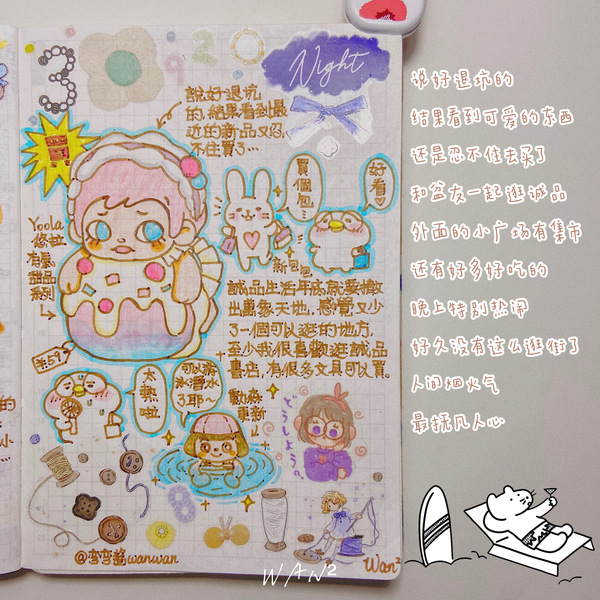 3
9
2
Night
說好退坑
的，結果看到最
近的新品又忍
不住買了…
Yoola
悠拉
有氣
甜品
系列
¥59
買個包…
好看♡
新包包
誠品生活年底就要撤
出萬象天地，感覺又少
了一個可以逛的地方，
至少我很喜歡逛誠品
書店，有很多文具可以買。
太熱啦
可以游
泳潛水
了耶~
動森
更新
どうしよう
@弯弯酱wanwan
Wan²
WAN²
说好退坑的
结果看到可爱的东西
还是忍不住去买了
和盆友一起逛诚品
外面的小广场有集市
还有好多好吃的
晚上特别热闹
好久没有这么逛街了
人间烟火气
最抚凡人心